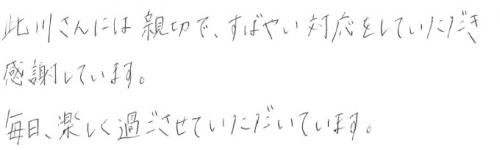 此川さんには親切で、すばやい対応をしていただき
感謝しています。
毎日、楽しく過ごさせていただいています。